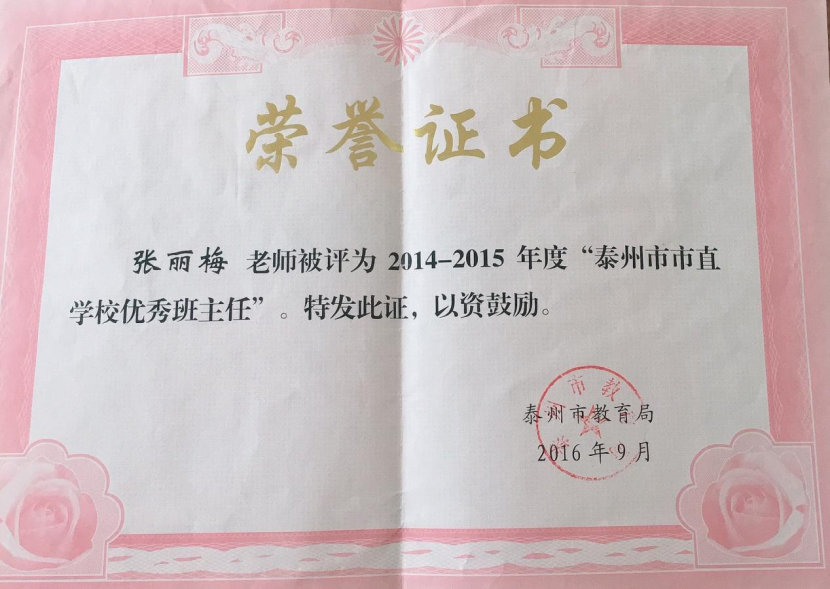 荣誉证书
张丽梅 老师被评为 2014-2015 年度“泰州市市直
学校优秀班主任”。特发此证，以资鼓励。
市教
泰州市教育局
2016 年 9 月